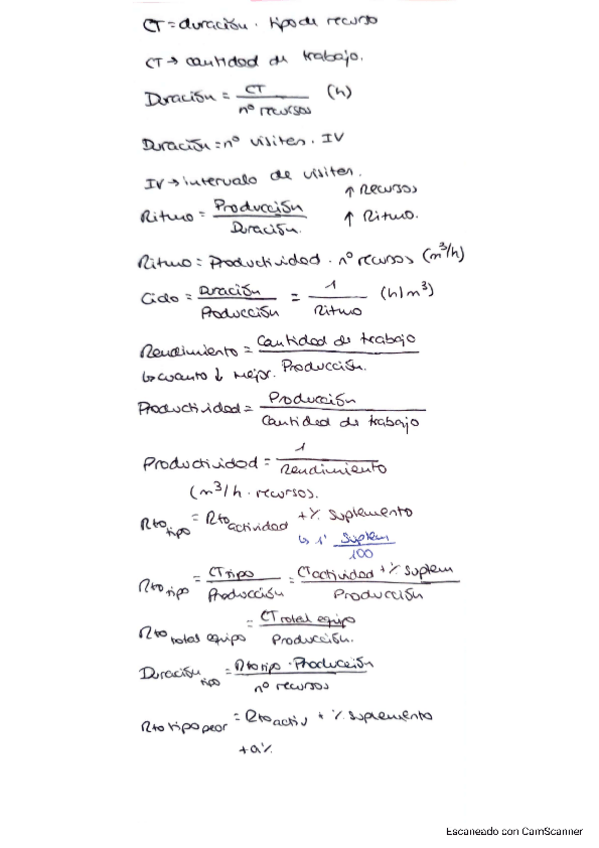 CT = duración · tipo de recurso
CT → cantidad de trabajo.
Duración = CT / nº recursos (h)
Duración = nº visites · IV
IV → intervalo de visites.
↑ Recursos
Ritmo = Producción / Duración. ↑ Ritmo.
Ritmo = Productividad · nº recursos (m³/h)
Ciclo = Duración / Producción = 1 / Ritmo (h/m³)
Rendimiento = Cantidad de trabajo / Producción.
↳ cuanto ↓ mejor.
Productividad = Producción / Cantidad de trabajo
Productividad = 1 / Rendimiento
(m³/h · recursos).
Rto tipo = Rto actividad + % Suplemento
↳ 1' Suplem / 100
Rto tipo = CT tipo / Producción = CT actividad + % Suplem / Producción
Rto total equipo = CT total equipo / Producción.
Duración tipo = Rto tipo · Producción / nº recursos
Rto tipo peor = Rto activ + % Suplemento
+ a%
Escaneado con CamScanner